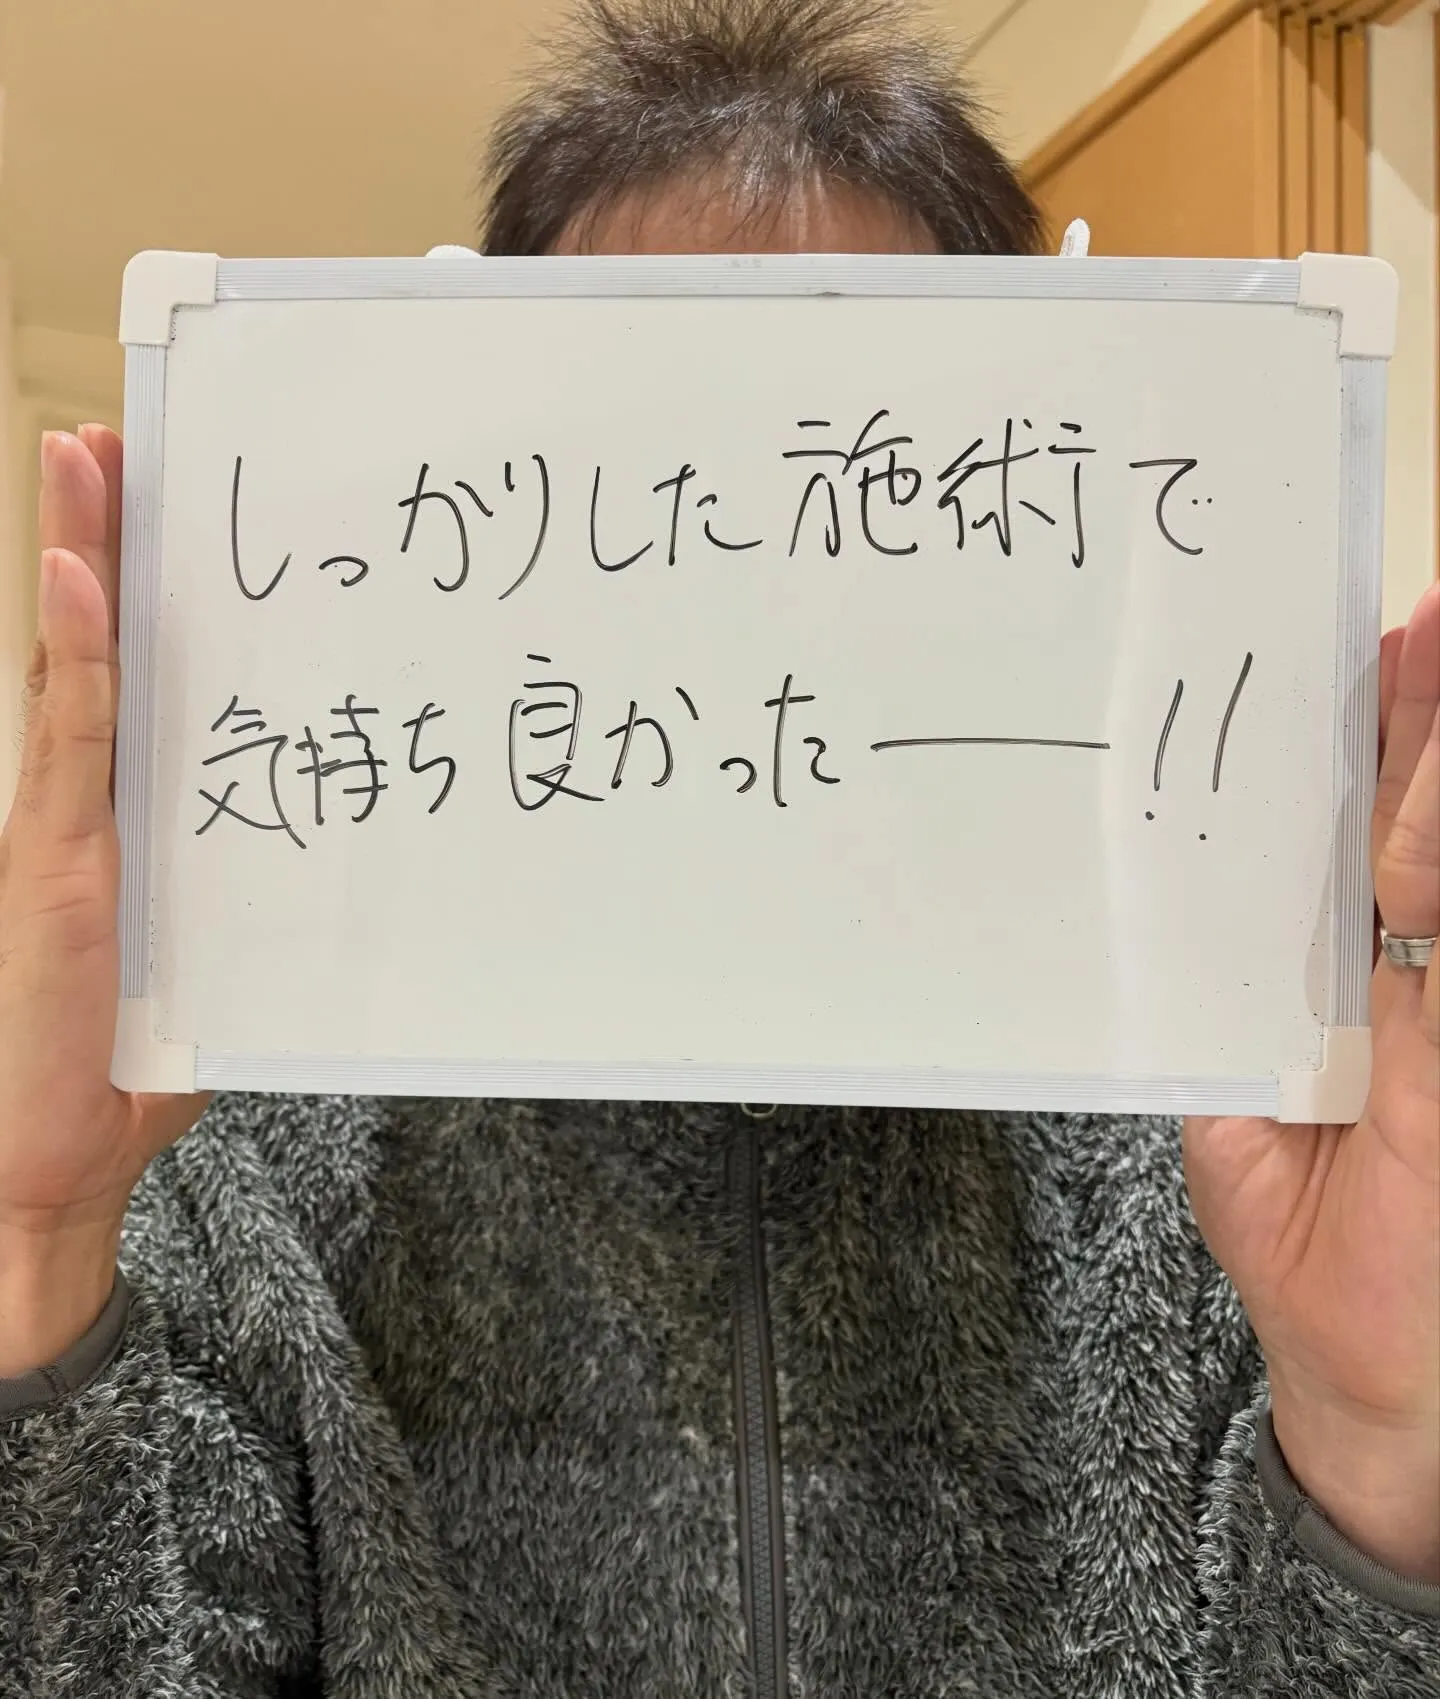 しっかりした施術で
気持ち良かったー!!